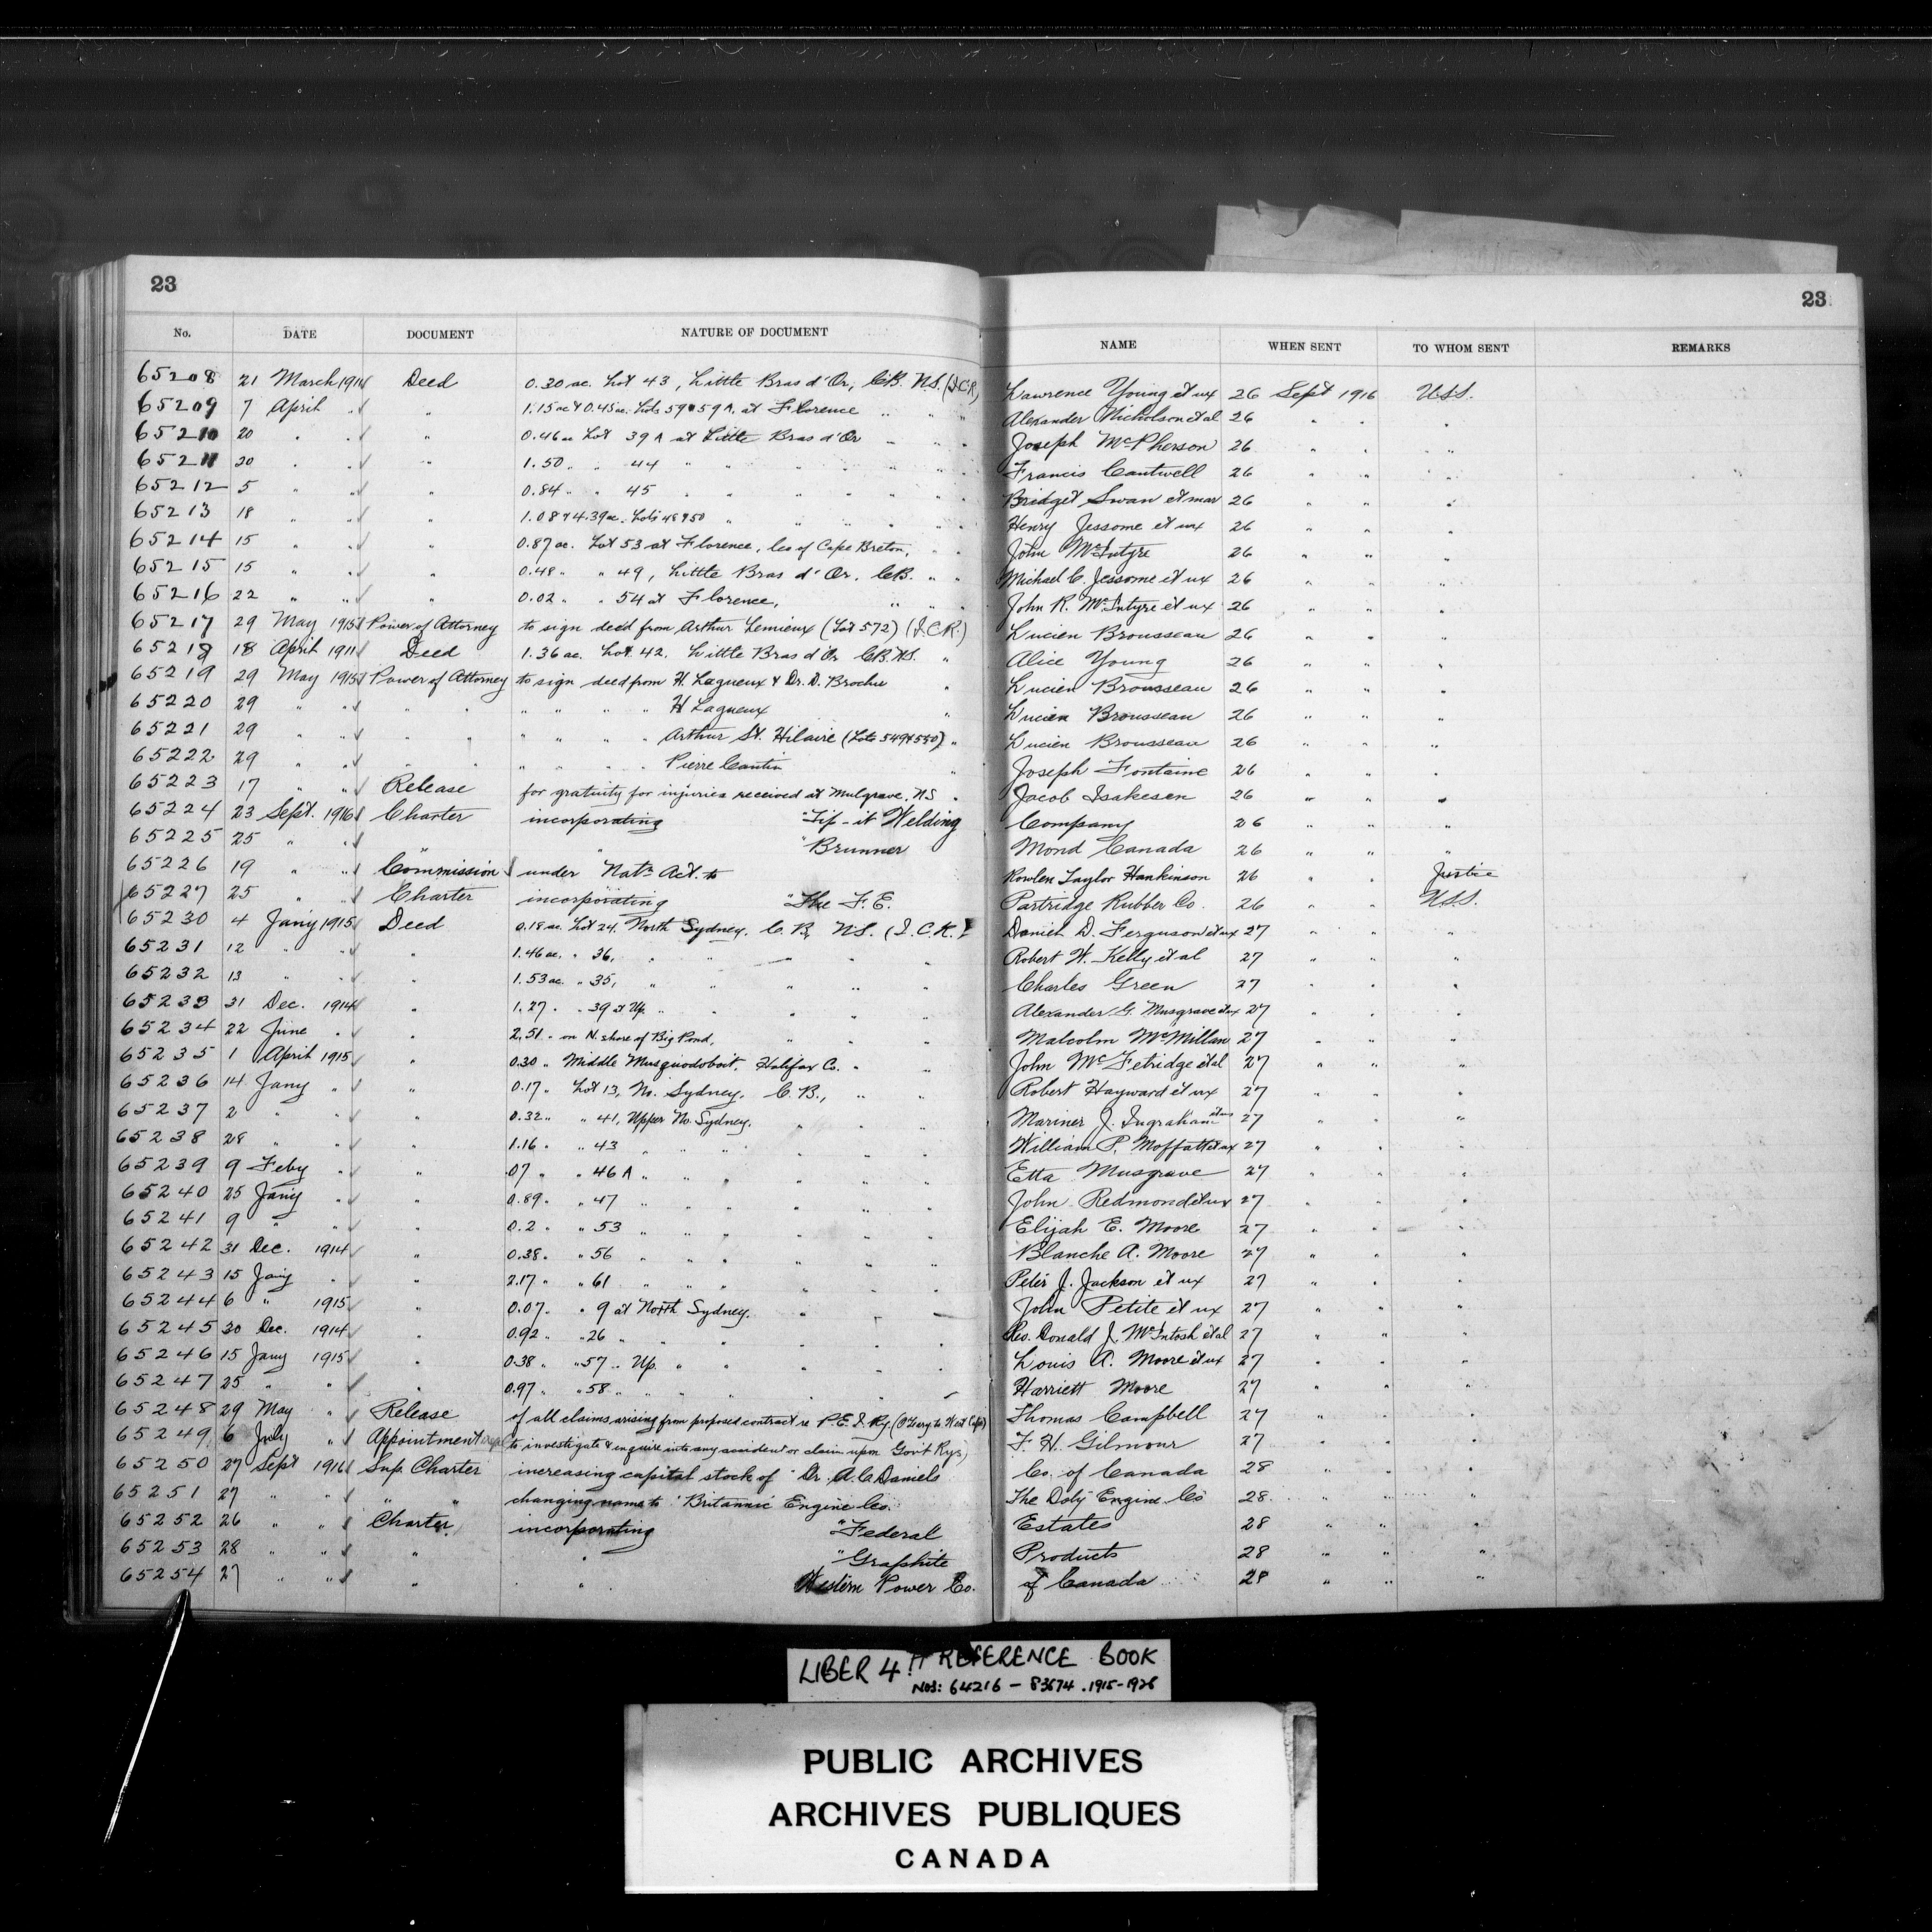 23
23
No. DATE DOCUMENT NATURE OF DOCUMENT NAME WHEN SENT TO WHOM SENT REMARKS
65208 21 March 1914 Deed 0.30 ac. Lot 43, Little Bras d'Or, C.B. N.S. (I.C.R.) Lawrence Young et ux 26 Sept 1916 U.S.S.
65209 7 April " " 1.15 ac & 0.45 ac. Lots 59 & 59A. at Florence " " " Alexander Nicholson et al 26 " " "
65210 20 " " " 0.46 ac Lot 39A at Little Bras d'Or " " " Joseph McPherson 26 " " "
65211 20 " " " 1.50 " " 44 " " " " " " Francis Cantwell 26 " " "
65212 5 " " " 0.84 " " 45 " " " " " " Bridget Swan et mar 26 " " "
65213 18 " " " 1.08 & 4.39 ac. Lots 48 & 50 " " " " " Henry Jessome et ux 26 " " "
65214 15 " " " 0.87 ac. Lot 53 at Florence, Co of Cape Breton, " " John McIntyre 26 " " "
65215 15 " " " 0.48 " " 49, Little Bras d'Or. C.B. " " Michael C. Jessome et ux 26 " " "
65216 22 " " " 0.02 " " 54 at Florence, " " " John R. McIntyre et ux 26 " " "
65217 29 May 1915 Power of Attorney to sign deed from Arthur Lemieux (Lot 572) (I.C.R.) Lucien Brousseau 26 " " "
65218 18 April 1911 Deed 1.36 ac. Lot 42. Little Bras d'Or C.B. N.S. " Alice Young 26 " " "
65219 29 May 1915 Power of Attorney to sign deed from H. Lagueux & Dr. D. Brochu " Lucien Brousseau 26 " " "
65220 29 " " " " " " " " H Lagueux " Lucien Brousseau 26 " " "
65221 29 " " " " " " " " Arthur St. Hilaire (Lots 549 & 550) " Lucien Brousseau 26 " " "
65222 29 " " " " " " " " Pierre Cantin " Joseph Fontaine 26 " " "
65223 17 " " Release for gratuity for injuries received at Mulgrave, N.S " Jacob Isakesen 26 " " "
65224 23 Sept. 1916 Charter incorporating "Tip-it Welding Company 26 " " "
65225 25 " " " " "Brunner Mond Canada 26 " " "
65226 19 " " Commission under Natn Act. to Rowlen Taylor Hankinson 26 " " Justice
65227 25 " " Charter incorporating "The F. E. Partridge Rubber Co. 26 " " U.S.S.
65230 4 Jany 1915 Deed 0.18 ac. Lot 24. North Sydney. C.B, N.S. (I.C.R.) Daniel D. Ferguson et ux 27 " " "
65231 12 " " " 1.46 ac. " 36, " " " " " Robert W. Kelly et al 27 " " "
65232 13 " " " 1.53 ac. " 35, " " " " " Charles Green 27 " " "
65233 31 Dec. 1914 " 1.27 " " 39 at Up. " " " " " Alexander G. Musgrave et ux 27
65234 22 June " " 2.51 " on N. shore of Big Pond, " " " Malcolm McMillan 27 " " "
65235 1 April 1915 " 0.30 " Middle Musquodoboit, Halifax Co. " " John McFetridge et al 27 " " "
65236 14 Jany " " 0.17 " Lot 13, No. Sydney, C.B., " " Robert Hayward et ux 27 " " "
65237 2 " " " 0.32 " " 41, Upper No. Sydney, " " " Mariner J. Ingraham et ux 27 " " "
65238 28 " " " 1.16 " " 43 " " " " " " William P. Moffatt et ux 27 " " "
65239 9 Feby " " .07 " " 46A " " " " " " Etta Musgrave 27 " " "
65240 25 Jany " " 0.89 " " 47 " " " " " " John Redmond et ux 27 " " "
65241 9 " " " 0.2 " " 53 " " " " " " Elijah E. Moore 27 " " "
65242 31 Dec. 1914 " 0.38 " " 56 " " " " " " Blanche A. Moore 27 " " "
65243 15 Jany " " 2.17 " " 61 " " " " " " Peter J. Jackson et ux 27 " " "
65244 6 " 1915 " 0.07 " " 9 at North Sydney. " " " John Petite et ux 27 " " "
65245 30 Dec. 1914 " 0.92 " " 26 " " " " " " Rev. Donald J. McIntosh et al 27 " " "
65246 15 Jany 1915 " 0.38 " " 57 " Up. " " " " " Louis A. Moore et ux 27 " " "
65247 25 " " " 0.97 " " 58 " " " " " " Harriett Moore 27 " " "
65248 29 May " Release of all claims arising from proposed contract re P.E.I. Ry. (O'Leary to West Cape) Thomas Campbell 27 " " "
65249 6 July " Appointment to investigate & enquire into any accident or claim upon Gov't Rys.) F. H. Gilmour 27 " " "
65250 27 Sept 1916 Sup. Charter increasing capital stock of "Dr. A.C. Daniels Co. of Canada 28 " " "
65251 27 " " " " changing name to "Britannic Engine Co. The Doty Engine Co 28 " " "
65252 26 " " Charter incorporating "Federal Estates 28 " " "
65253 28 " " " " "Graphite Products 28 " " "
65254 27 " " " " Western Power Co. of Canada 28 " " "
LIBER 4 REFERENCE BOOK
NOS: 64216 – 83674 . 1915-1926
PUBLIC ARCHIVES
ARCHIVES PUBLIQUES
CANADA